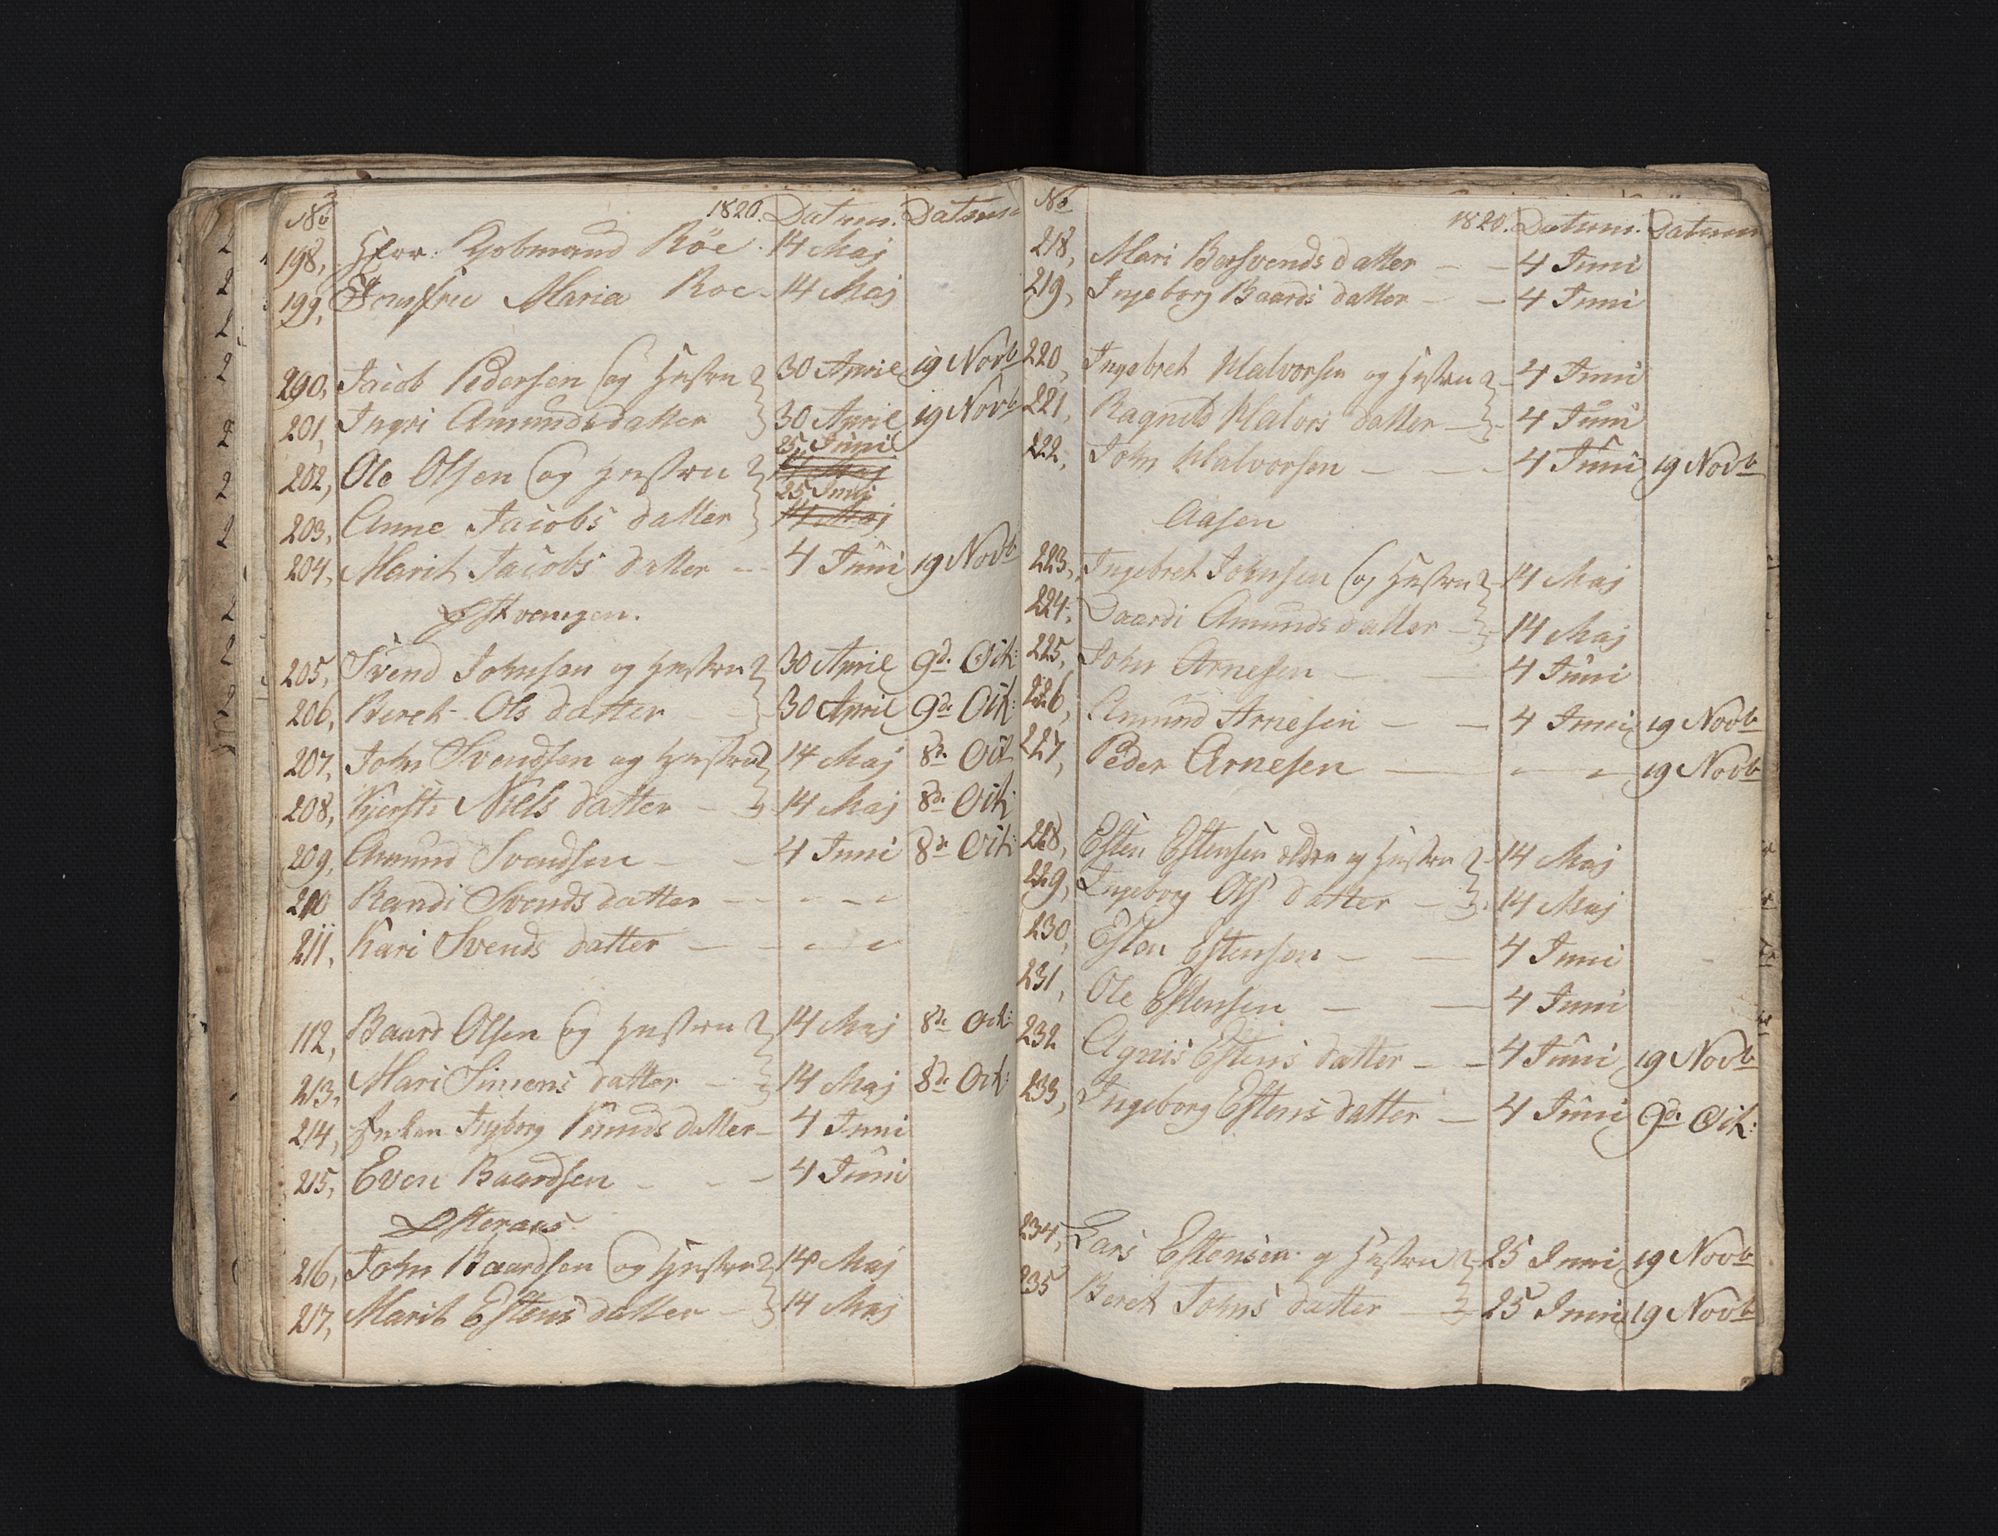 No 1820. Datum. Datum
198, Herr. Kobmand Röe. 14 Maj
199, Jomfrue Maria Roe - 14 Maj
290, Jacob Pedersen og Hustru 30 April 19 Novb
201, Ingri Amundsdatter 30 April 19 Novb
202, Ole Olsen og Hustru 25 Juni 14 Maj
203, Anne Jacobs datter 25 Juni 14 Maj
204, Marit Jacobs datter - 4 Juni 19 Novb
Østvengen.
205, Svend Johnsen og Hustru 30 April 9d. Oct:
206, Beret Ols datter - 30 April 9d. Oct:
207, John Svendsen og Hustru 14 Maj 8d. Oct
208, Kjersti Niels datter - 14 Maj 8d. Oct:
209, Amund Svendsen - - 4 Juni 8d. Oct:
210 Randi Svends datter - - - -
211, Kari Svends datter - - - -
112, Baard Olsen og Hustru 14 Maj 8d. Oct:
213, Mari Simens datter - 14 Maj 8d. Oct:
214, Enken Ingborg Knuds datter - 4 Juni
215, Even Baardsen - - - 4 Juni
Østeraas
216, John Baardsen og Hustru 14 Maj
217, Marit Estens datter - 14 Maj
No 1820. Datum. Datum
218, Mari Bersvends datter - - 4 Juni
219, Ingeborg Baards datter - - 4 Juni
220, Ingebret Halvorsen og Hustru - 4 Juni
221, Ragnild Halvors datter - 4 Juni
222, John Halvorsen - - - 4 Juni 19 Novb
Aasen
223, Ingebret Johnsen og Hustru - 14 Maj
224, Baardi Amunds datter - 14 Maj
225, John Arnesen - - 4 Juni
226, Amund Arnesen - - 4 Juni 19 Novb
227, Peder Arnesen - - - 19 Novb
228, Esten Estensen ældre og Hustru - 14 Maj
229, Ingeborg Ols datter - - 14 Maj
230, Esten Estensen - - 4 Juni
231, Ole Estensen - - 4 Juni
232 Agnis Estens datter - - 4 Juni 19 Novb
233, Ingeborg Estens datter - 4 Juni 9d. Oct:
234, Lars Estensen. og Hustru - 25 Juni 19 Novb
235 Beret Johns datter - 25 Juni 19 Novb